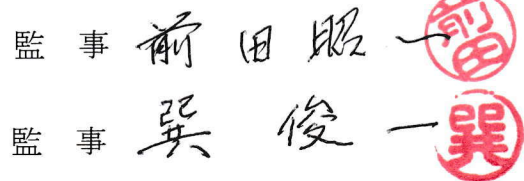 監事 前田昭一 前田
監事 巽俊一 巽